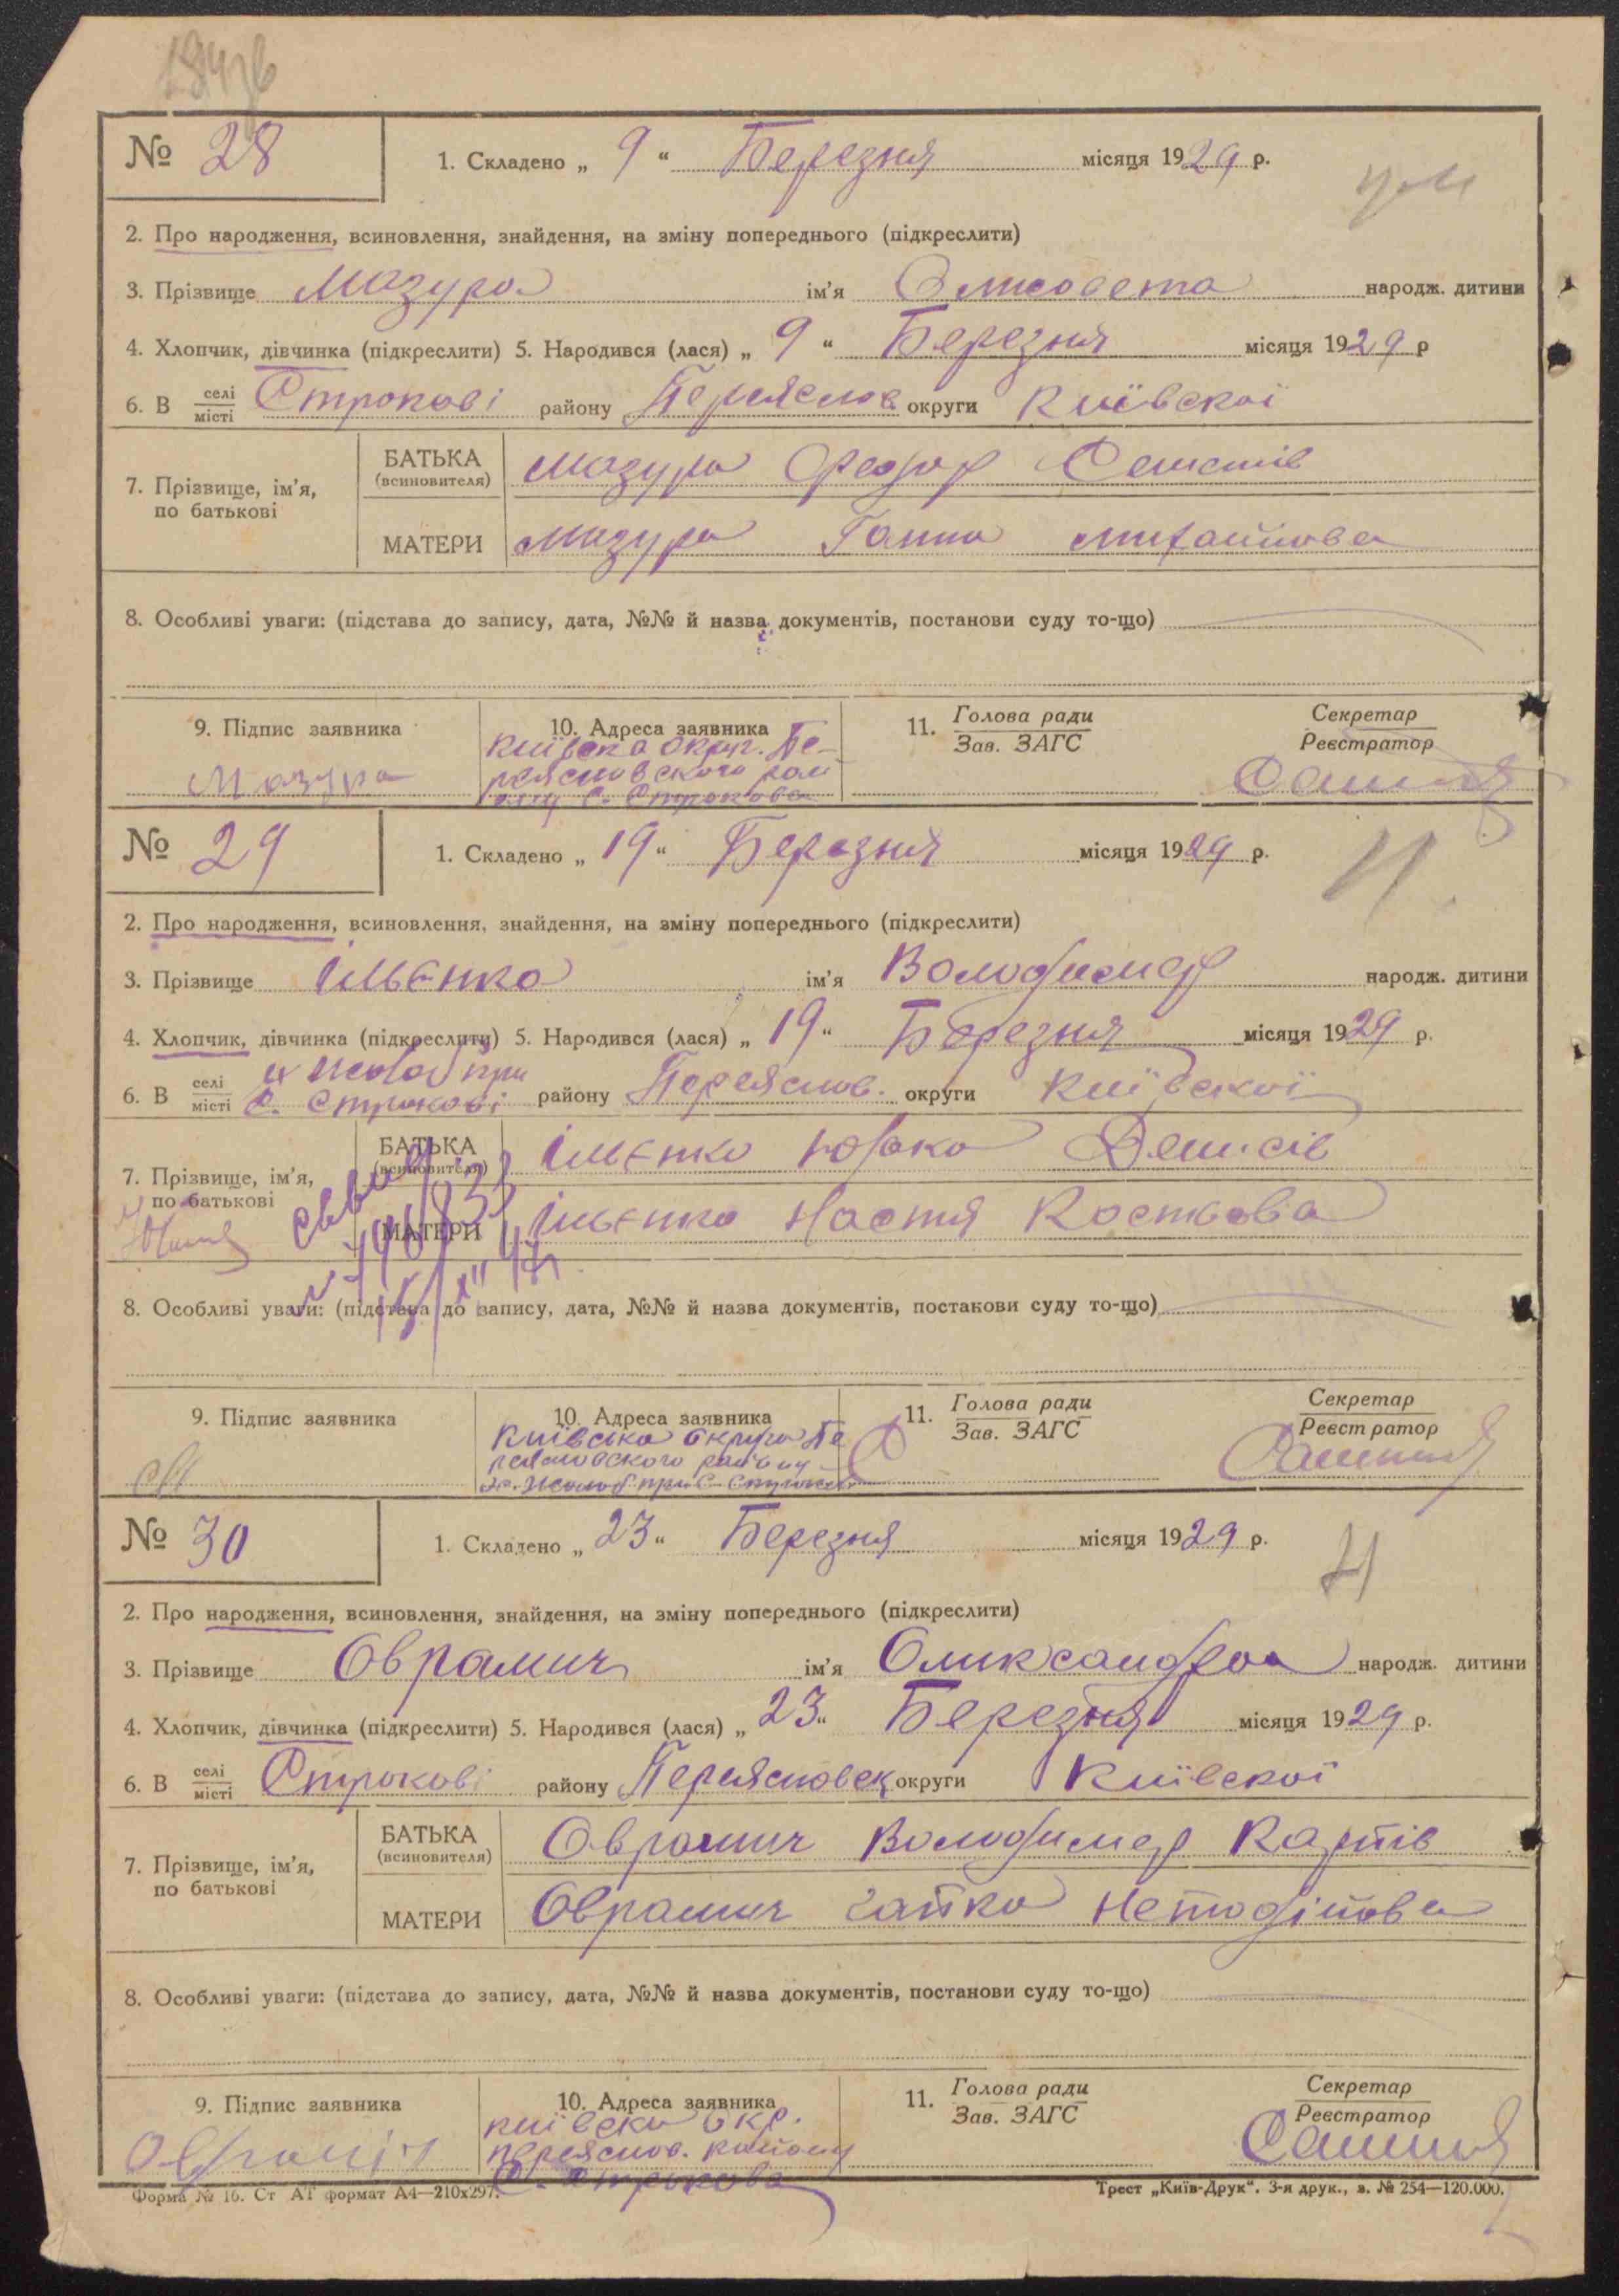 № 28
1. Складено „ 9 “ Березня місяця 1929 р.
2. Про народження, всиновлення, знайдення, на зміну попереднього (підкреслити)
3. Прізвище Мазура ім'я Элисовета народж. дитини
4. Хлопчик, дівчинка (підкреслити) 5. Народився (лася) „ 9 “ Березня місяця 1929 р
6. В селі місті Строкові району Переяслов. округи Київскої
7. Прізвище, ім'я, по батькові
БАТЬКА (всиновителя) Мазура Федор
МАТЕРИ Мазура Ганна Михайлова
8. Особливі уваги: (підстава до запису, дата, №№ й назва документів, постанови суду то-що)
9. Підпис заявника
10. Адреса заявника
11. Голова ради Зав. ЗАГС
Секретар Реєстратор
Мазура
Київска округ. Пе-
реясловского рай
ону С. Строкова
№ 29
1. Складено „ 19 “ Березня місяця 1929 р.
2. Про народження, всиновлення, знайдення, на зміну попереднього (підкреслити)
3. Прізвище Ільєнко ім'я Володимер народж. дитини
4. Хлопчик, дівчинка (підкреслити) 5. Народився (лася) „ 19 “ Березня місяця 1929 р.
6. В селі місті х Жолоб при с. Строкові району Переяслов. округи Київскої
7. Прізвище, ім'я, по батькові
БАТЬКА (всиновителя) Ільєнко Юрко Денисів
МАТЕРИ Ільєнко Настя Костьова
8. Особливі уваги: (підстава до запису, дата, №№ й назва документів, постакови суду то-що)
9. Підпис заявника
10. Адреса заявника
11. Голова ради Зав. ЗАГС
Секретар Реєстратор
Київська округа Пе
реясловского району
х. Жолоб при С. Строкові
№ 30
1. Складено „ 23 “ Березня місяця 1929 р.
2. Про народження, всиновлення, знайдення, на зміну попереднього (підкреслити)
3. Прізвище Оврамич ім'я Олександра народж. дитини
4. Хлопчик, дівчинка (підкреслити) 5. Народився (лася) „ 23 “ Березня місяця 1929 р.
6. В селі місті Строкові району Переясловск округи Київскої
7. Прізвище, ім'я, по батькові
БАТЬКА (всиновителя) Оврамич Володимер Карпів
МАТЕРИ Оврамич Гапка
8. Особливі уваги: (підстава до запису, дата, №№ й назва документів, постанови суду то-що)
9. Підпис заявника
10. Адреса заявника
11. Голова ради Зав. ЗАГС
Секретар Реєстратор
Овраміч
Київска окр.
переяслов. району
С. Строкова
Форма № 16. Ст АТ формат А4—210х297.
Трест „Київ-Друк“. 3-я друк., з. № 254—120.000.